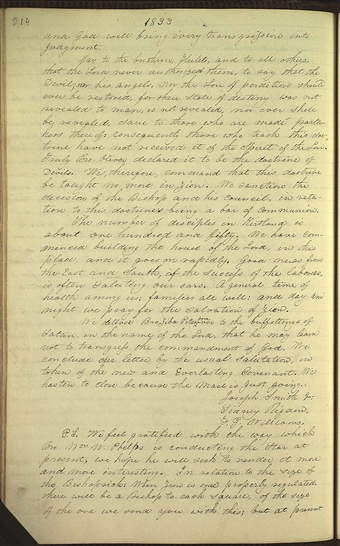 314 1833
and God will bring every transgression into
judgment.
Say to the brethren Hulets, and to all others
that the Lord never authorized them, to say that the
Devil, nor his angels, nor the Son of perdition should
ever be restored, for their state of destiny was not
revealed to man, is not revealed, nor ever shall
be revealed, save to those who are made parta-
kers thereof: consequently those who teach this doc-
trine have not received it of the Spirit of the Lord.
Truly Br. Oliver declared it to be the doctrine of
Devils. We, therefore, command that this doctrine
be taught no more in Zion. We sanction the
decision of the Bishop and his council, in rela-
tion to this doctrine being a bar of communion.
The number of disciples in Kirtland is
about one hundred and fifty. We have com-
menced building the house of the Lord, in this
place, and it goes on rapidly. Good news from
the East and South, of the success of the labors,
is often saluting our ears. A general time of
health among us; families all well; and day and
night we pray for the salvation of Zion.
We deliver Bro. Ziba to the buffetings of
Satan, in the name of the Lord, that he may learn
not to transgress the commandments of God. We
conclude our letter by the usual salutation, in
token of the new and Everlasting Covenant. We
hasten to close because the Mail is just going.
Joseph Smith Jr.
Sidney Rigdon,
F. G. Williams.
P.S. We feel gratified with the way which
Br. Wm W. Phelps is conducting the Star at
present, we hope he will seek to render it more
and more interesting. In relation to the size of
the Bishopricks: When Zion is once properly regulated
there will be a Bishop to each square, of the size
of the one we send you with this; but at present